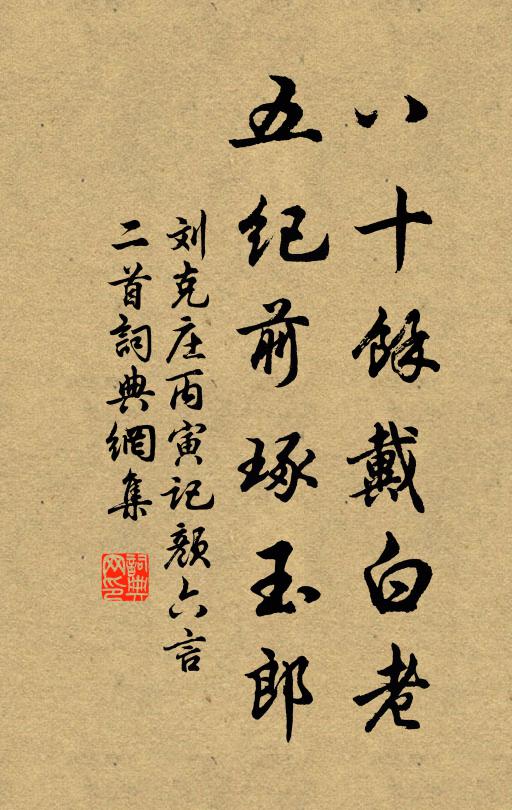 八十餘戴白老
五纪前琢玉郎
刘克庄丙寅记颜六言
二首詞典網集
詞典
网印